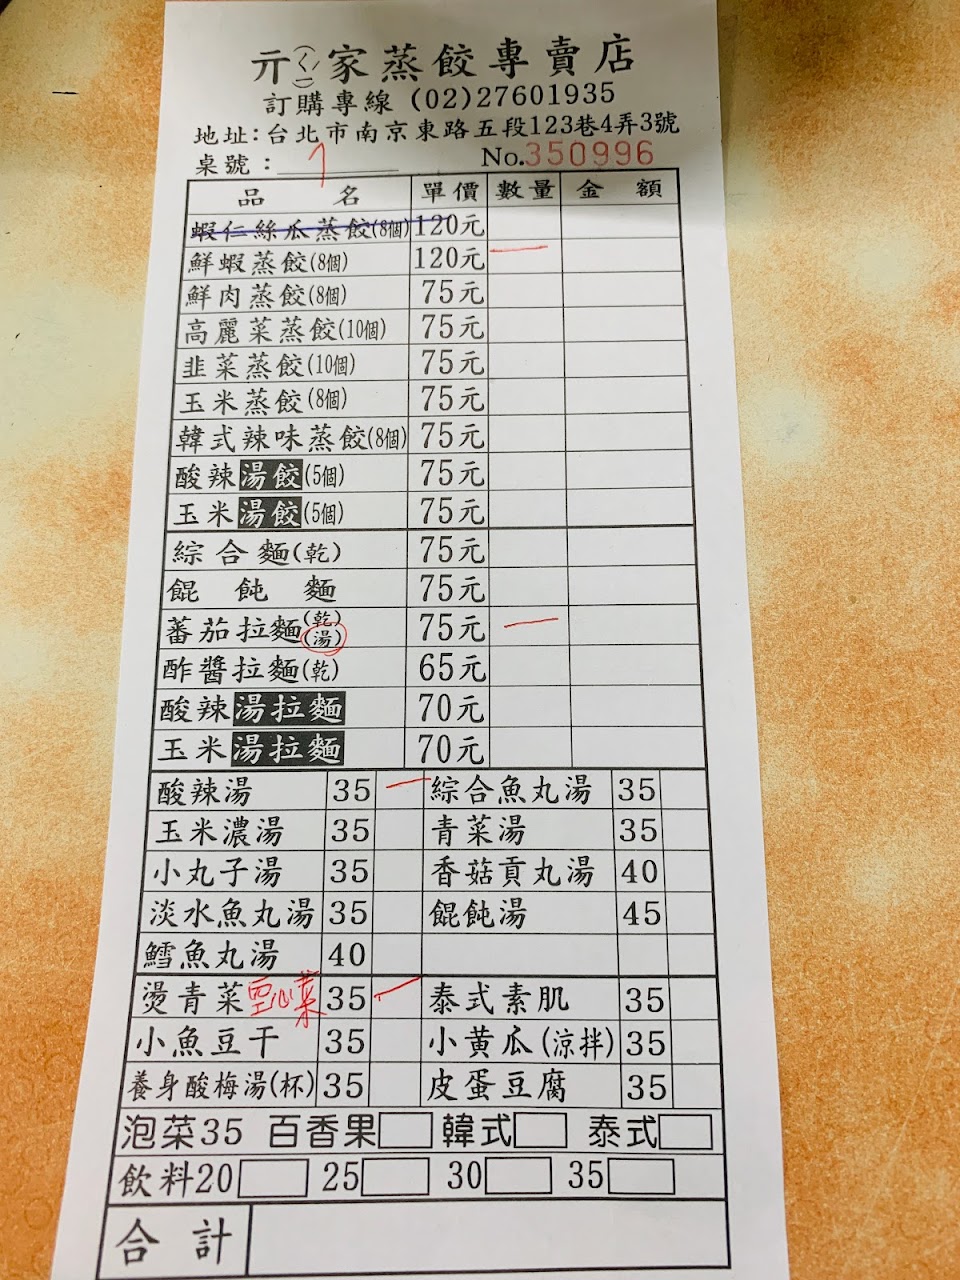 亓(ㄑㄧˊ)家蒸餃專賣店
訂購專線 (02)27601935
地址:台北市南京東路五段123巷4弄3號
桌號: 7 No.350996
品名 單價 數量 金額
蝦仁絲瓜蒸餃(8個) 120元
鮮蝦蒸餃(8個) 120元 一
鮮肉蒸餃(8個) 75元
高麗菜蒸餃(10個) 75元
韭菜蒸餃(10個) 75元
玉米蒸餃(8個) 75元
韓式辣味蒸餃(8個) 75元
酸辣湯餃(5個) 75元
玉米湯餃(5個) 75元
綜合麵(乾) 75元
餛飩麵 75元
蕃茄拉麵(乾)(湯) 75元 一
酢醬拉麵(乾) 65元
酸辣湯拉麵 70元
玉米湯拉麵 70元
酸辣湯 35 一 綜合魚丸湯 35
玉米濃湯 35 青菜湯 35
小丸子湯 35 香菇貢丸湯 40
淡水魚丸湯 35 餛飩湯 45
鱈魚丸湯 40
燙青菜 空心菜 35 一 泰式素肌 35
小魚豆干 35 小黃瓜(涼拌) 35
養身酸梅湯(杯) 35 皮蛋豆腐 35
泡菜35 百香果 韓式 泰式
飲料20 25 30 35
合計